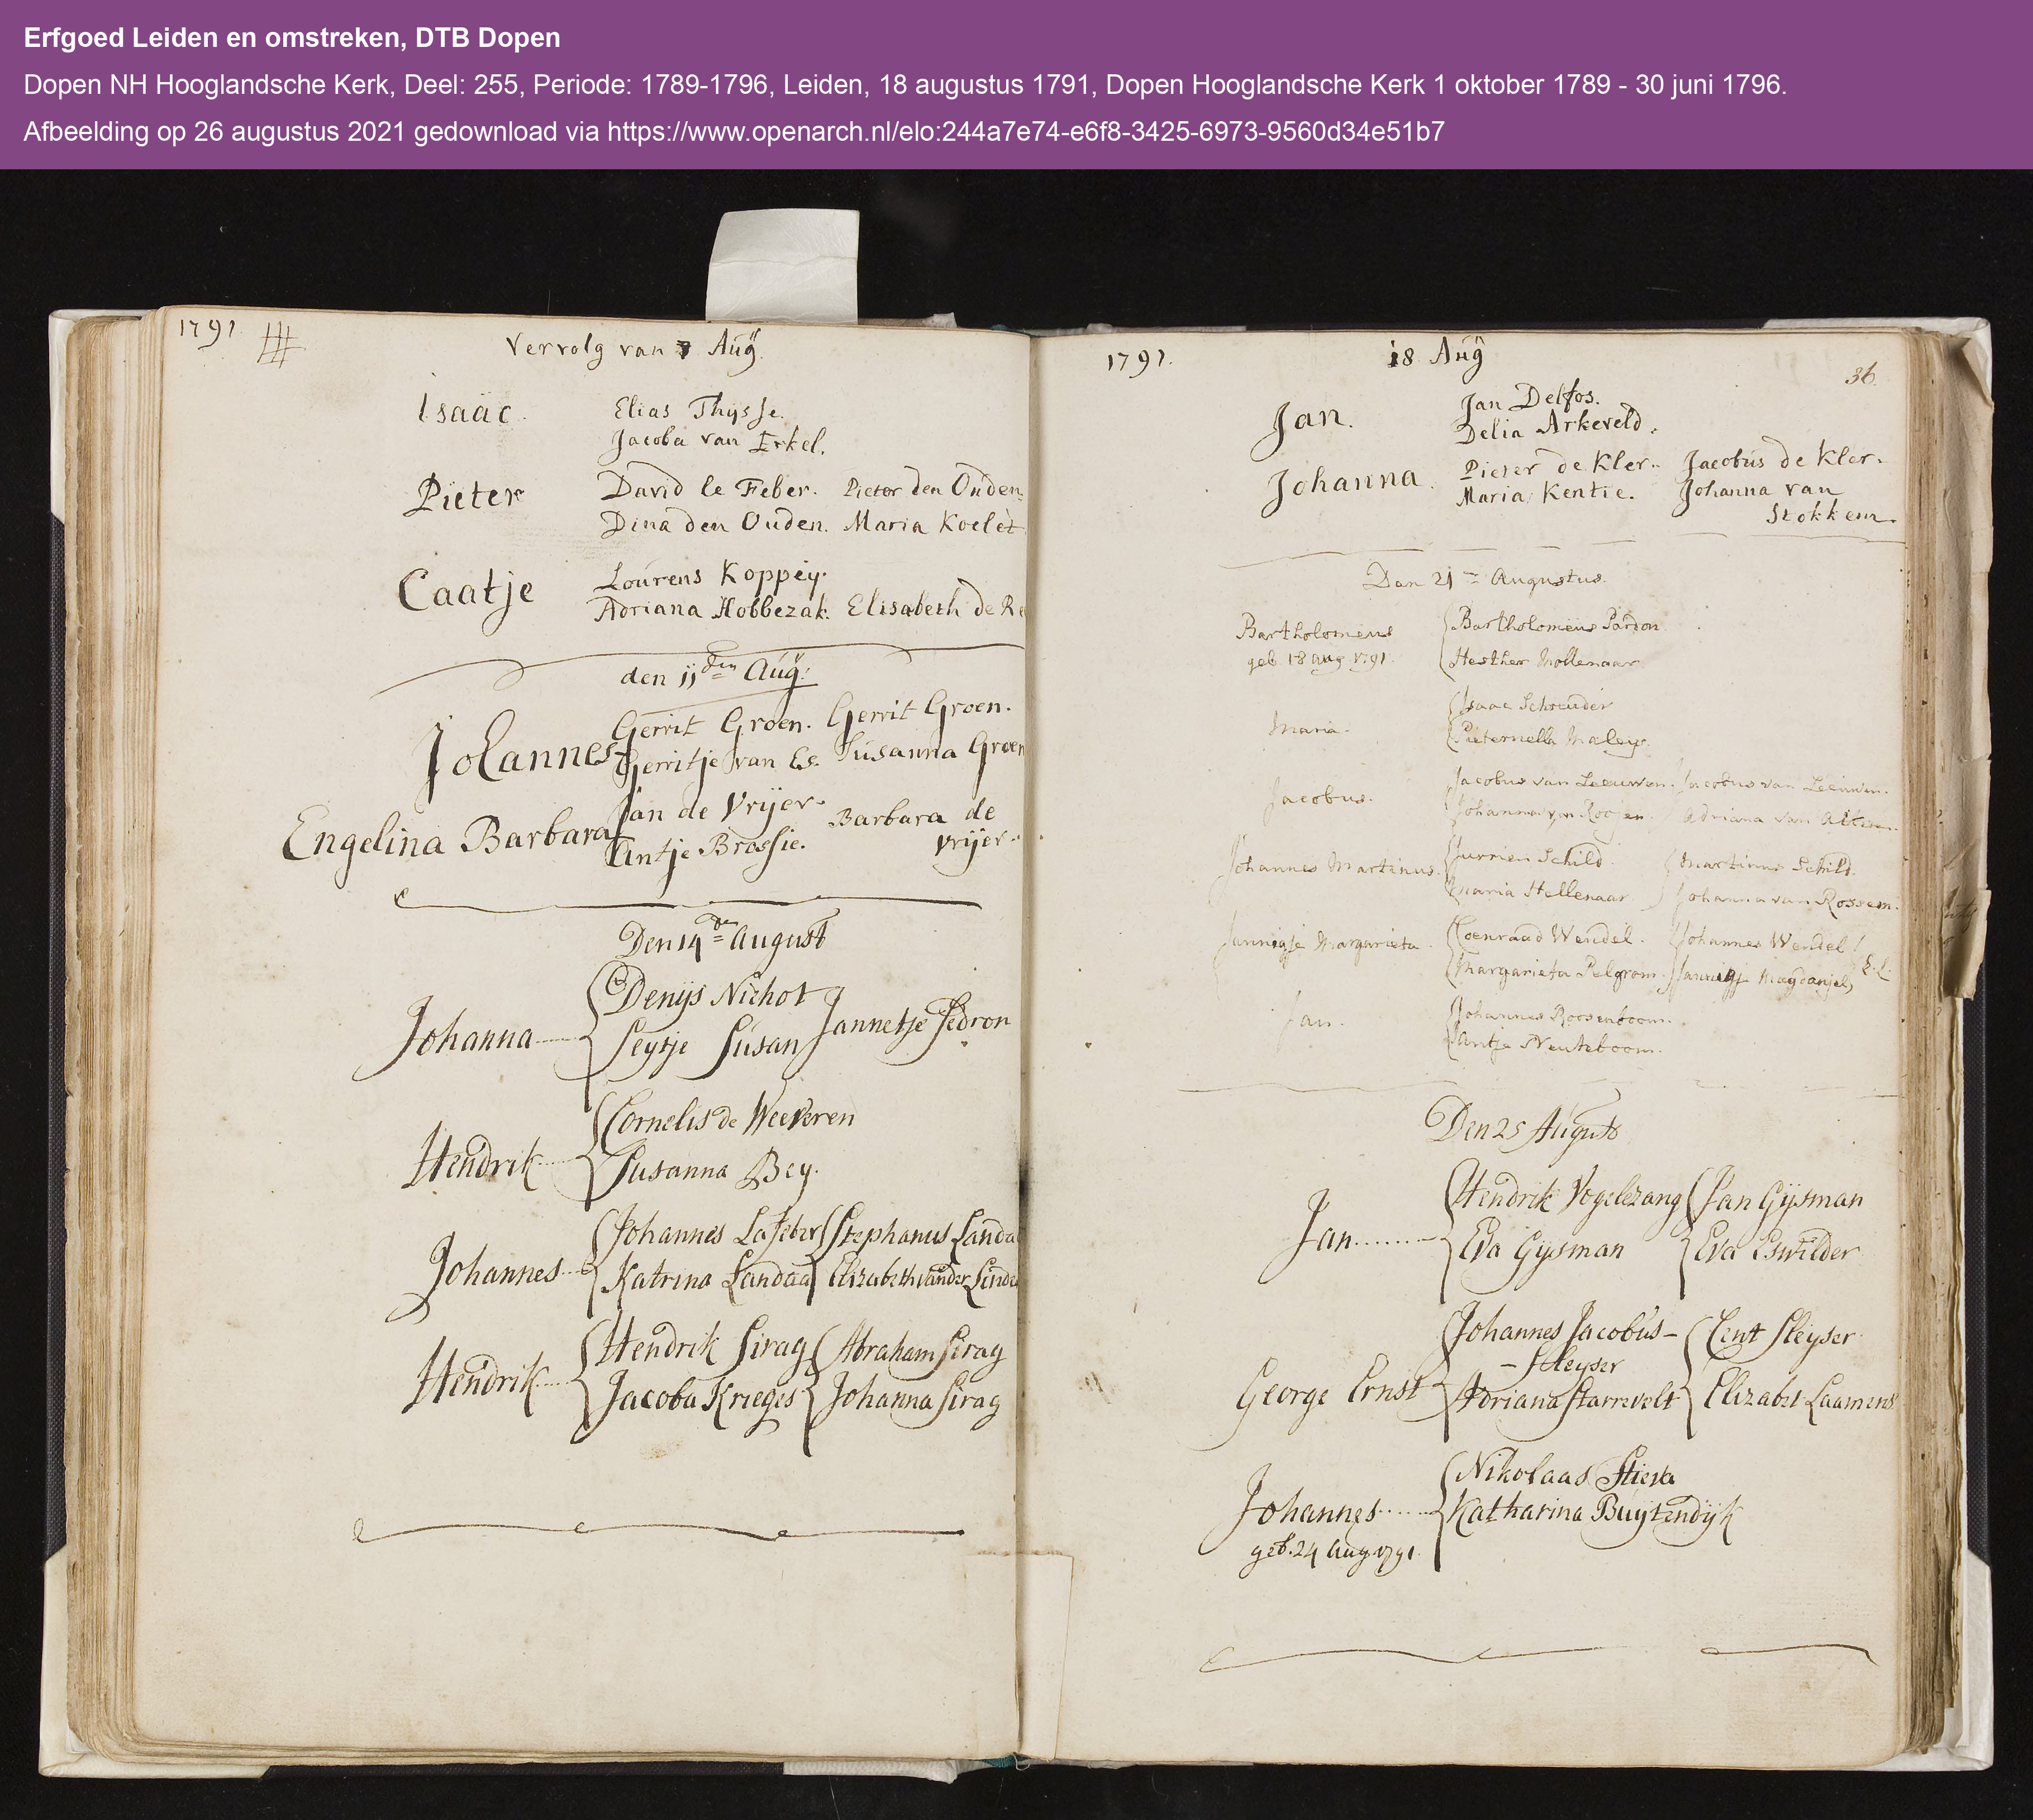 Erfgoed Leiden en omstreken, DTB Dopen
Dopen NH Hooglandsche Kerk, Deel: 255, Periode: 1789-1796, Leiden, 18 augustus 1791, Dopen Hooglandsche Kerk 1 oktober 1789 - 30 juni 1796.
Afbeelding op 26 augustus 2021 gedownload via https://www.openarch.nl/elo:244a7e74-e6f8-3425-6973-9560d34e51b7
1791
Vervolg van 7 Aug.
Isaäc. Elias Thijsse.
Jacoba van Erkel.
Pieter David le Feber. Pieter den Ouden.
Dina den Ouden. Maria Koelet
Caatje Lourens Koppeÿ.
Adriana Hobbezak. Elisabeth de Re
den 11den Aug:
Johannes Gerrit Groen. Gerrit Groen.
Gerritje van Es. Susanna Groen
Engelina Barbara Jan de Vrijer. Barbara de
Antje Brossie. Vrijer.
Den 14de August
Johanna Denijs Nichot Jannetje Pedron
Seytje Susan
Hendrik Cornelis de Weeveren
Susanna Bey.
Johannes Johannes Lafeber Stephanus Landa
Katrina Landaa Elizabeth vander Linde
Hendrik Hendrik Sirag Abraham Sirag
Jacoba Krieges Johanna Sirag
1791. 18 Aug
36.
Jan. Jan Delfos.
Delia Arkeveld.
Johanna. Pieter de Kler. Jacobus de Kler.
Maria Kentie. Johanna van
Stokkem.
Den 21 Augustus.
Bartholomeus Bartholomeus Pardon
geb 18 aug 1791. Hesther Mollenaar
Maria. Isaac Schreuder
Pieternella Maleys.
Jacobus. Jacobus van Leeuwen. Jacobus van Leeuwen.
Johanna van Roojen. Adriana van
Johannes Martinus. Jurrien Schild. Martinus Schild.
Maria Stellenaar Johanna van Rossem.
Jannigje Margarieta. Coenraad Wendel. Johannes Wendel
Margarieta Pelgrom. Jannigje
Jan. Johannes Roosenboom.
Jantje Neuteboom.
Den 25 Augusts
Jan Hendrik Vogelezang Jan Gijsman
Eva Gijsman Eva Eswilder
George Ernst Johannes Jacobus- Cent Sleyser
- Sleyser
Adriana Starrevelt Elizabet Laamens
Johannes Nikolaas Stieva
Katharina Buytendijk
geb. 24 Aug 1791.